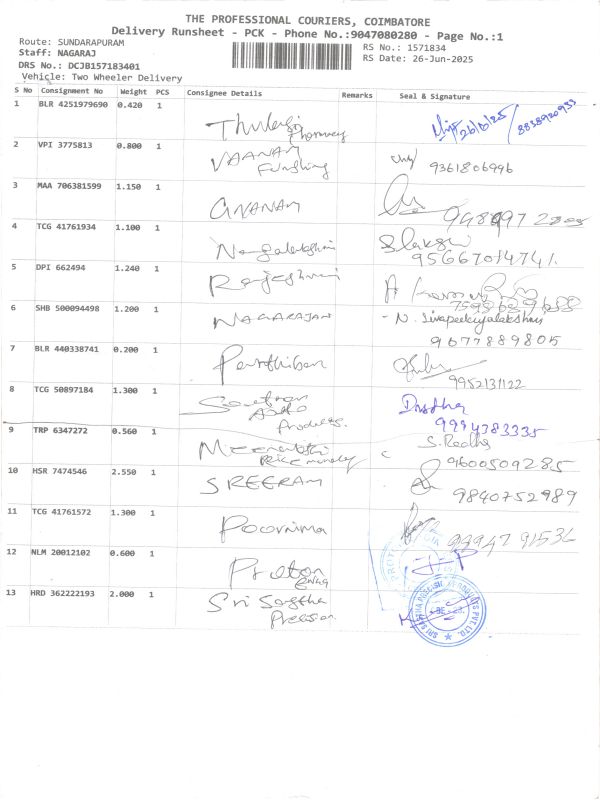 THE PROFESSIONAL COURIERS, COIMBATORE
Delivery Runsheet - PCK - Phone No.:9047080280 - Page No.:1
Route: SUNDARAPURAM
Staff: NAGARAJ
DRS No.: DCJB157183401
Vehicle: Two Wheeler Delivery
RS No.: 1571834
RS Date: 26-Jun-2025
S No Consignment No Weight PCS Consignee Details Remarks Seal & Signature
1 BLR 4251979690 0.420 1 26/6/25 / 8838920933
Pharmacy
2 VPI 3775813 0.800 1 VAANAM 9361806996
3 MAA 706381599 1.150 1 GNANAM
4 TCG 41761934 1.100 1 Nagalakshmi S Laksmi
95667014741.
5 DPI 662494 1.240 1 Rajeshwari
6 SHB 500094498 1.200 1 NAGARAJAN - N. Sivapackiyalakshmi
9677889805
7 BLR 440338741 0.200 1 Parthiban
9952131122
8 TCG 50897184 1.300 1 Auto Products.
9994383335
9 TRP 6347272 0.560 1 Meenakshi S. Radha
9600509285
10 HSR 7474546 2.550 1 SREERAM
9840752989
11 TCG 41761572 1.300 1 Poornima
12 NLM 20012102 0.600 1 Proton
13 HRD 362222193 2.000 1 Sri Sastha